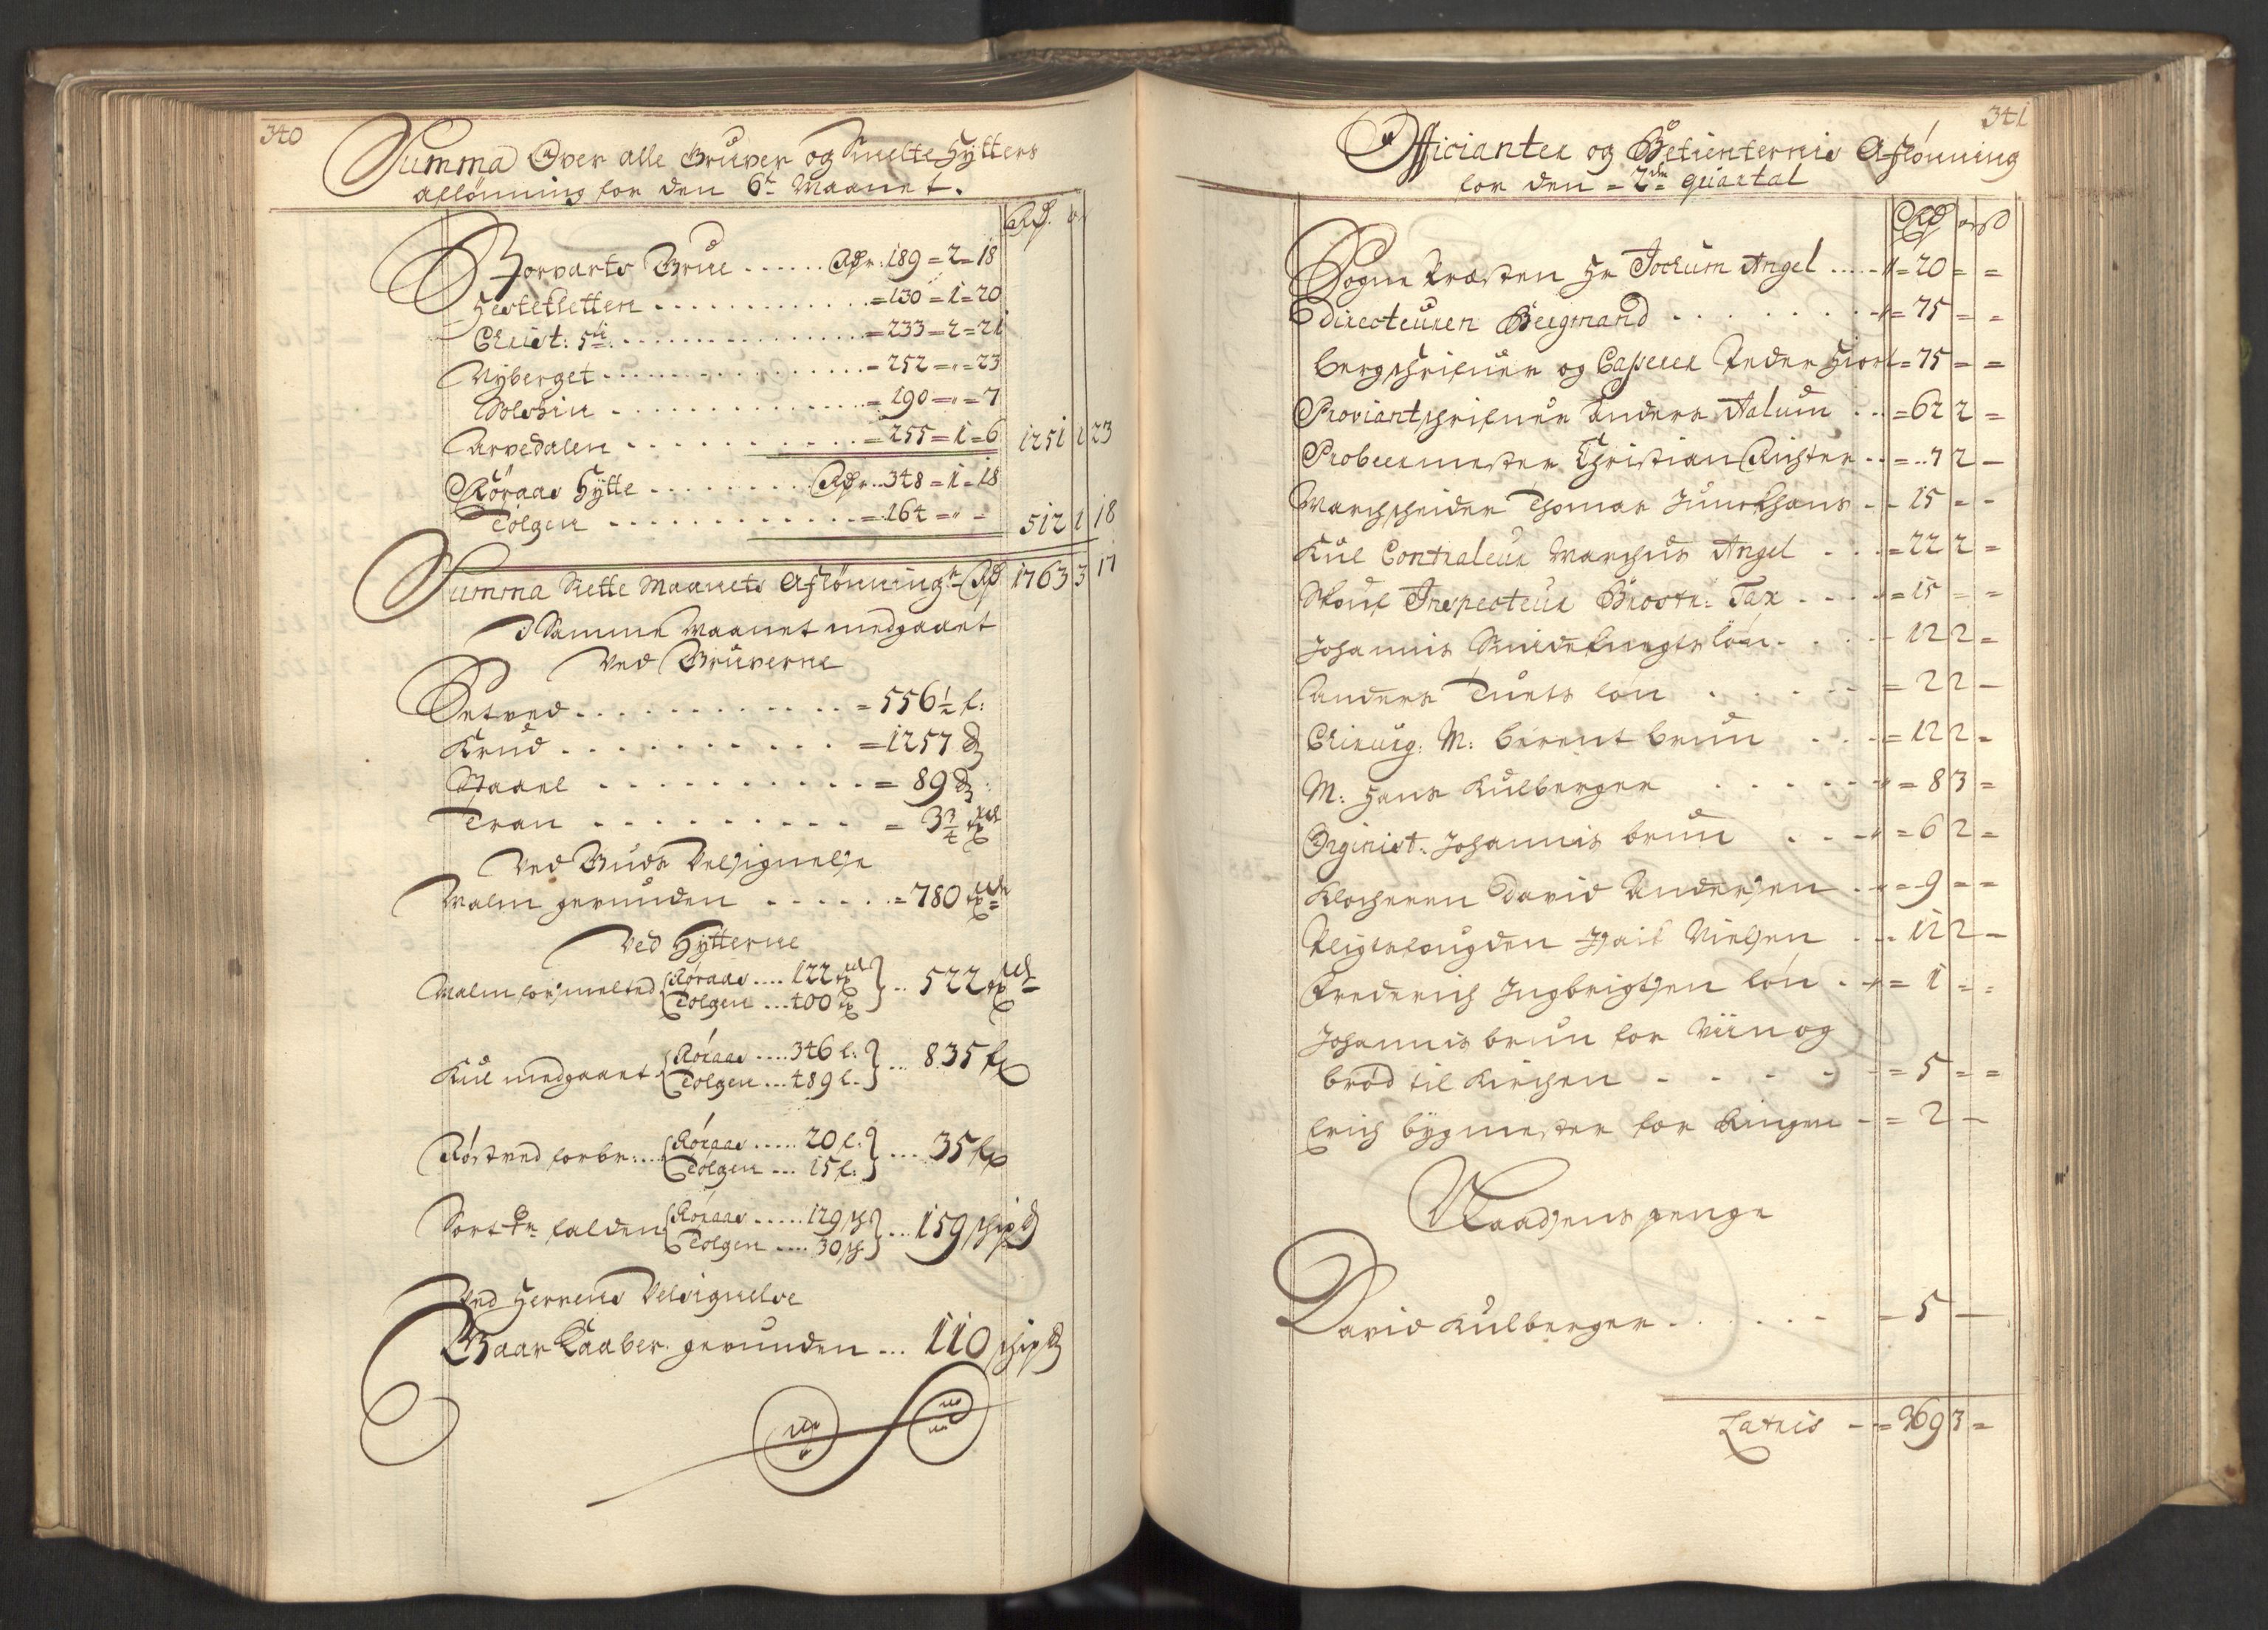 340
Summa Over alle Gruver og Smelte Hytters
aflönning for den 6te Maanet.
Rdr.
Storvarts Grue ...... Rdr: 189 = 2 = 18
Hestekletten ............ = 130 = 1 = 20
Christ: 5ti ............ = 233 = 2 = 21
Nyberget ............ = 252 = " = 23
Solskin ............ = 190 = " = 7
Arvedalen ............ = 255 = 1 = 6 1251 1 23
Röraas Hytte ........ Rdr.. 348 = 1 = 18
Tolgen ............ = 164 = " = 512 1 18
Summa Siette Maanets Aflönning Rd 1763 3 17
I Samme Maanet medgaaet
Ved Gruverne
Setved ............ = 556½ f:
Krud ............ = 1257 ℔
Staael ............ = 89 ℔
Tran ............ = 3¾
Ved Guds Velsignelse
Malm gevunden ...... = 780
Ved Hytterne
Malm forsmelted Röraas .... 122
Tolgen ... 400 .. 522
Kul medgaaet Röraas .... 346 l:
Tolgen ... 489 l. ... 835
Röstved forbr: ... Röraas ..... 20 f:
Tolgen ... 15 f: .... 35
Sort falden Röraas ..... 129
Tolgen .... 30 ... 159 schip℔
Ved Herrens Velsignelse
Gaar Kaaber gevunden ... 110 schip℔
341
Officianter og Betienternis Aflönning
for den = 2de quartal
Rd
Sogne Præsten Hr Jochum Angel ..... = 20 = =
Directeuren Bergmand ........ = 75 = =
bergschrifuer og Casserer Peder Hiort = 75 = =
Proviantschrifuer Anders Aalum .. = 62 2 =
Probeermester Christian Richter .. = .. 7 2 -
Marchscheider Thomas Junckhans - - 15 = -
Kul Contraleur Marchus Angel ... = 22 2 =
Skouf Inspecteur Brostr: Tax .... = 15 = =
Johannis Smidefougts lön .... - 12 2 =
Anders Tuets lön ..... = 2 2 -
Chirurg: M: berent brun ... = 12 2 =
M: Hans Kulberger ..... = 8 3 =
Orginist. Johannis brun ... = 6 2 =
Klocheren David Andersen .. = 9 = =
Pligtefougden Isak Nielsen ... 12 2 -
Frederich Ingbrigtsen lön . = 1 = =
Johannis brun for Viin og
bröd til Kirchen ...... = 5 = =
Erich bygmester for Ringen - = 2 -
Naadsens penge
David Kulberger ....... = 5 -
Latris - = 369 3 =